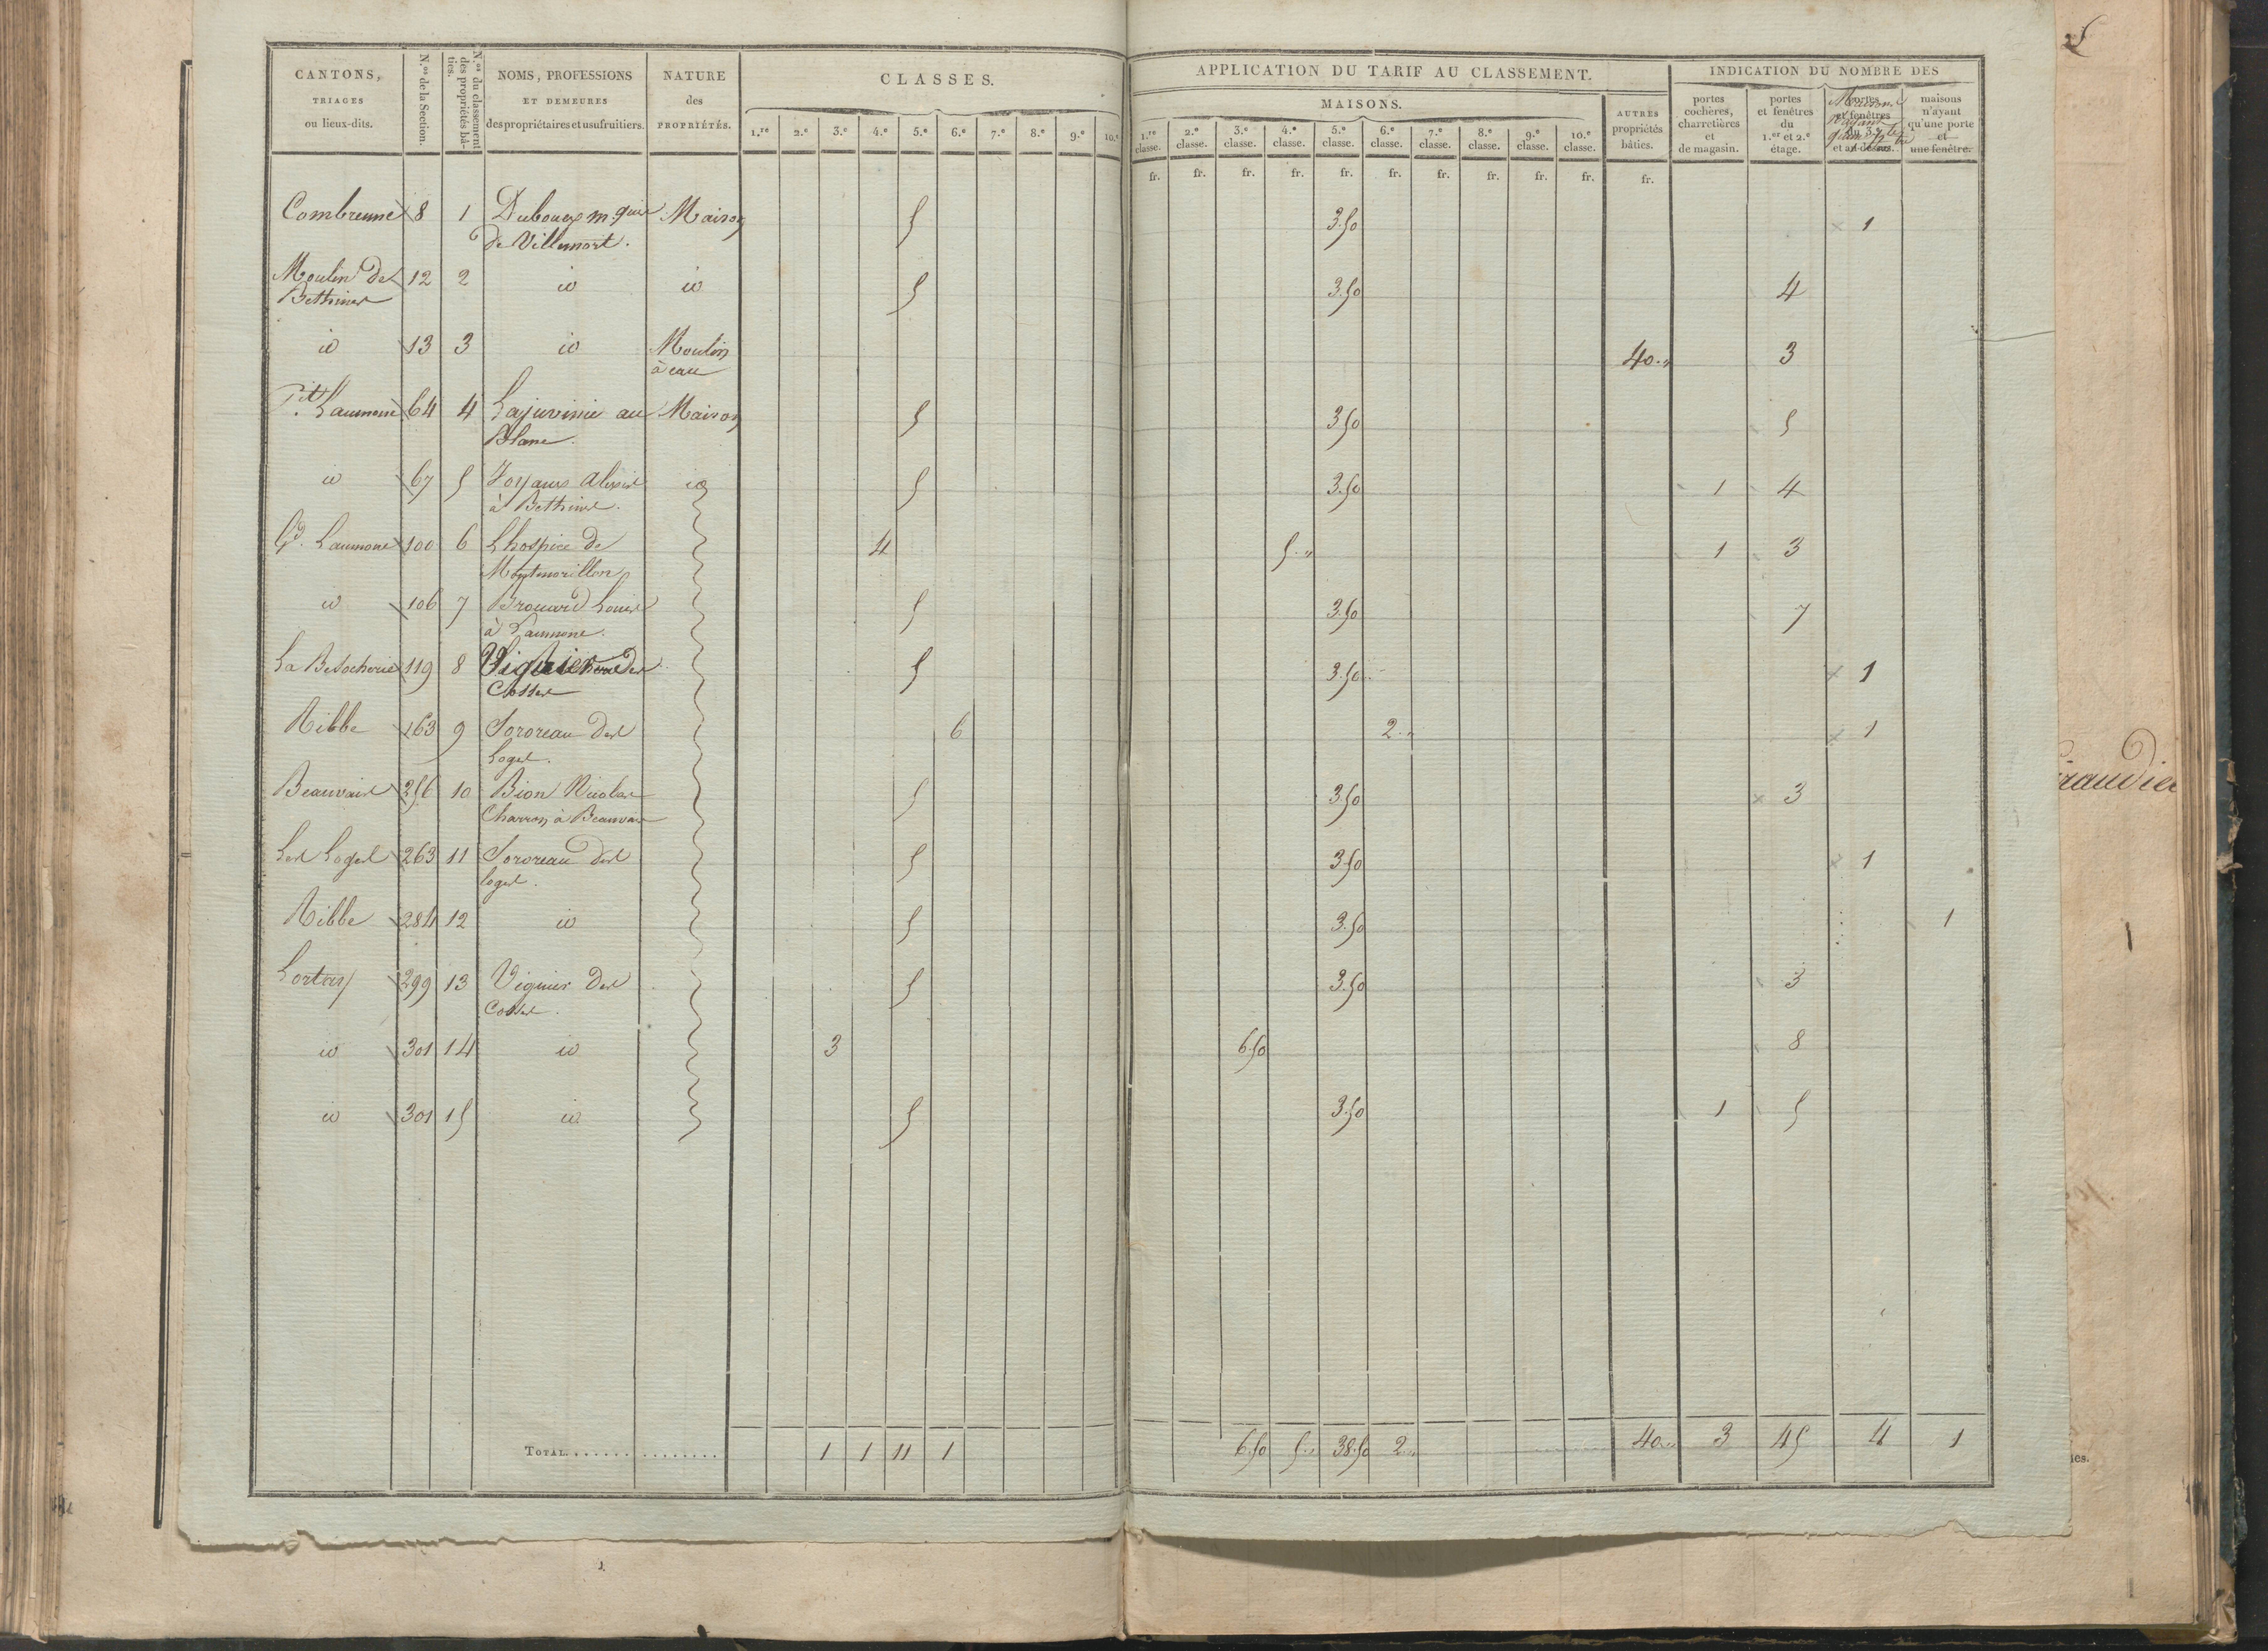 CANTONS,
TRIAGES
ou lieux-dits.
N.os de la Section.
N.os du classement
des propriétés bâ-
ties.
NOMS, PROFESSIONS
ET DEMEURES
des propriétaires et usufruitiers.
NATURE
des
PROPRIÉTÉS.
CLASSES.
1.re 2.e 3.e 4.e 5.e 6.e 7.e 8.e 9.e 10.e
APPLICATION DU TARIF AU CLASSEMENT.
MAISONS.
1.re classe. 2.e classe. 3.e classe. 4.e classe. 5.e classe. 6.e classe. 7.e classe. 8.e classe. 9.e classe. 10.e classe.
AUTRES
propriétés
bâties.
INDICATION DU NOMBRE DES
portes
cochères,
charretières
et
de magasin.
portes
et fenêtres
du
1.er et 2.e
étage.
portes
et fenêtres
du 3.e
et au-dessus.
Maisons
n'ayant
maisons
n'ayant
qu'une porte
et
une fenêtre.
fr. fr. fr. fr. fr. fr. fr. fr. fr. fr. fr.
8 1 Maison 5 3.50 1
de Villemort.
Moulin de 12 2 id id 5 3.50 4
Bethines
id 13 3 id Moulin 40.,, 3
à eau
Pit Laumone 64 4 Lajuvinie au Maison 5 3.50 5
Blanc.
id 67 5 Joyaux Alexis id 5 3.50 1 4
à Bethines.
Gd. Laumone 100 6 Lhospice de 4 5.,, 1 3
Montmorillon
id 106 7 Brouard Louis 5 3.50 7
à Laumone.
119 8 Viguier des 5 3.50 1
Cosses
Ribbe 163 9 Sororeau des 6 2.,, 1
Loges.
Beauvais 256 10 Bion Nicolas 5 3.50 3
Charron à Beauvais
Les Loges 263 11 Sororeau des 5 3.50 1
loges.
Ribbe 284 12 id 5 3.50 1
299 13 Viguier des 5 3.50 3
Cosses.
id 301 14 id 3 6.50 8
id 301 15 id 5 3.50 1 5
TOTAL................ 1 1 11 1 6.50 5.,, 38.50 2.,, 40.,, 3 45 4 1